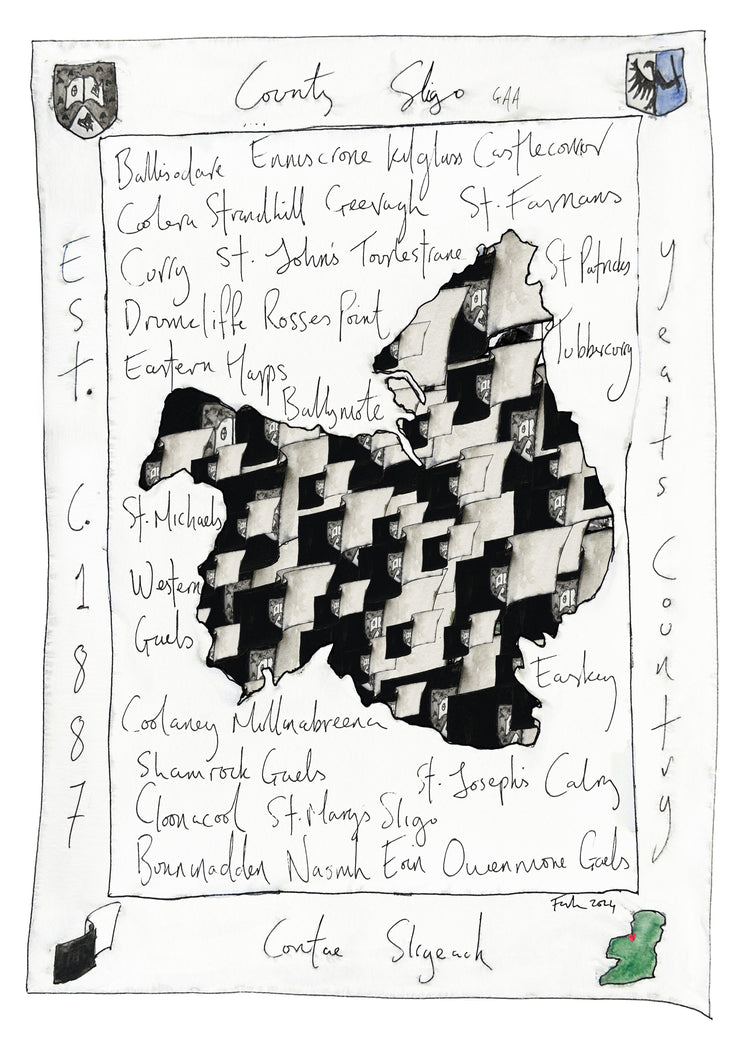 County Sligo GAA
Ballisodare Enniscrone Kilglass Castleconnor
Coolera Strandhill Geevagh St. Farnans
Curry St. John's Tourlestrane St Patricks
Drumcliffe Rosses Point Tubbercurry
Eastern Harps
Ballymote
St. Michaels
Western
Gaels
Easkey
Coolaney Mullinabreena
Shamrock Gaels St. Joseph's Calry
Cloonacool St. Marys Sligo
Bunninadden Naomh Eoin Owenmore Gaels
2024
Contae Sligeach
Est. C. 1887
Yeats Country